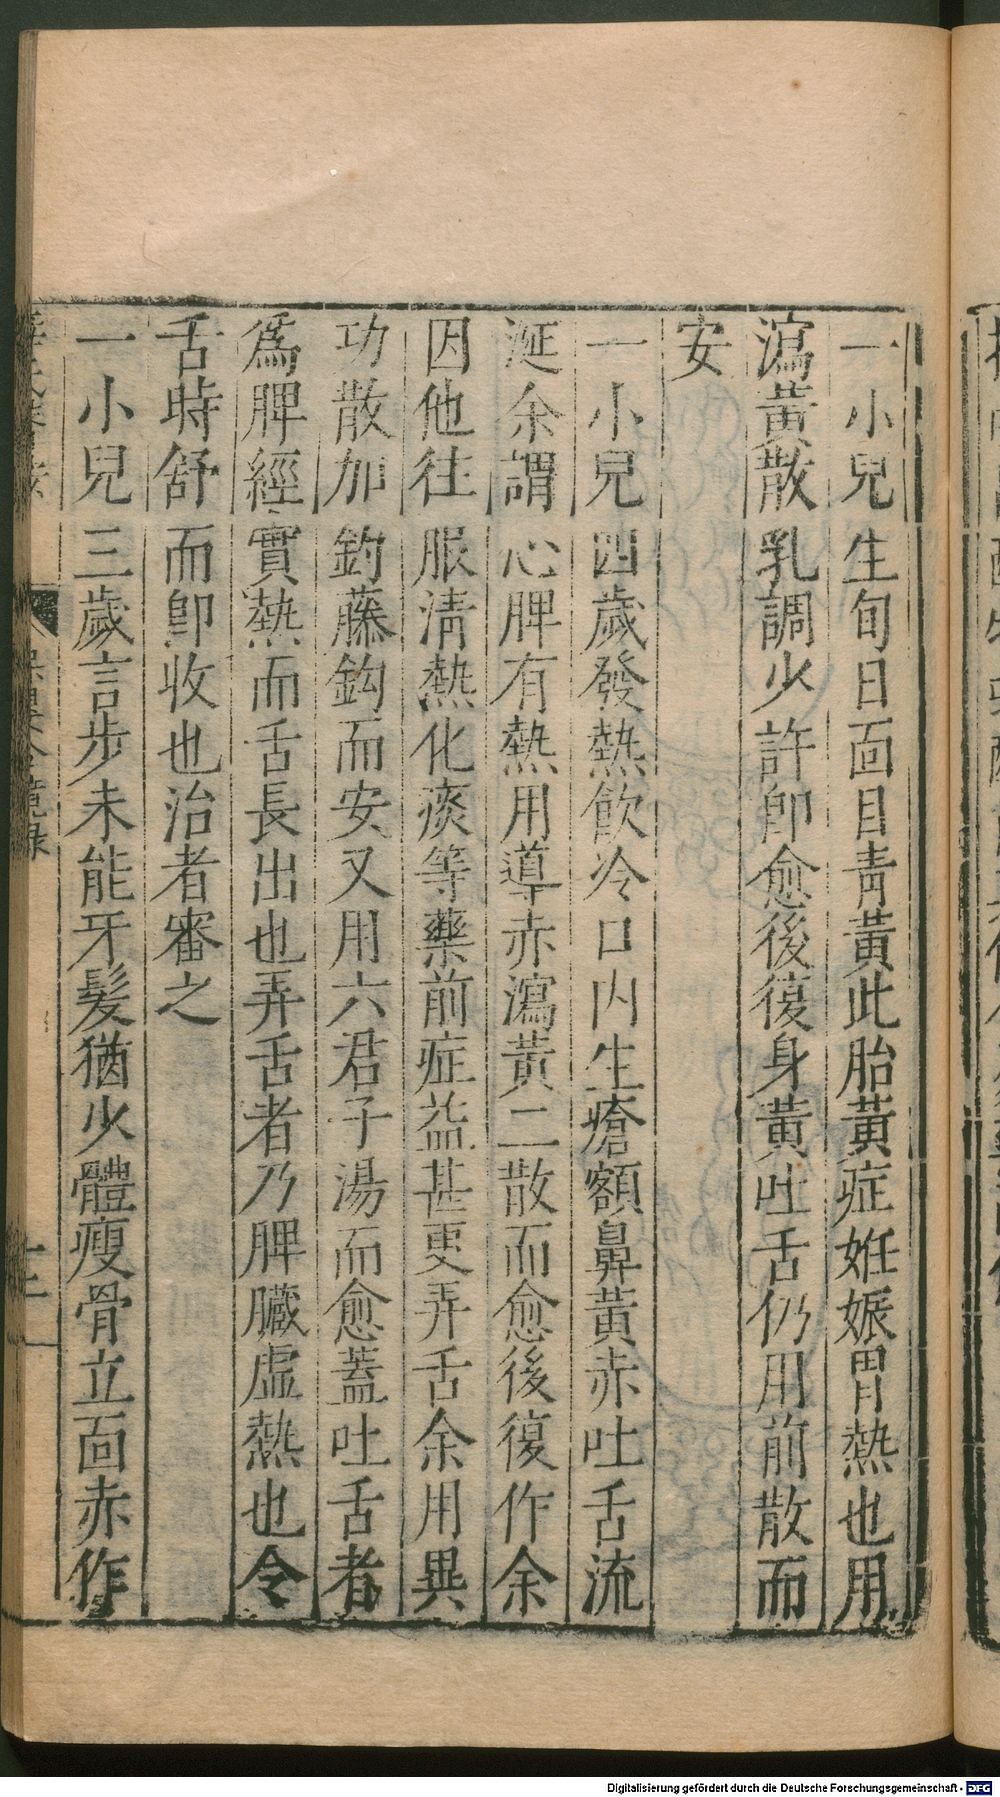 一小兒生旬日面目靑黃此胎黃症姙娠胃熱也用
瀉黃散乳調少許卽愈後復身黃吐舌仍用前散而
安
一小兒四歲發熱飮冷口內生瘡額鼻黃赤吐舌流
涎余謂心脾有熱用導赤瀉黃二散而愈後復作余
因他往服淸熱化痰等藥前症益甚更弄舌余用異
功散加鈞藤鈎而安又用六君子湯而愈蓋吐舌者
爲脾經實熱而舌長出也弄舌者乃脾臟虛熱也令
舌時舒而卽收也治者審之
一小兒三歲言步未能牙髮猶少體瘦骨立面赤作
Digitalisierung gefördert durch die Deutsche Forschungsgemeinschaft - DFG